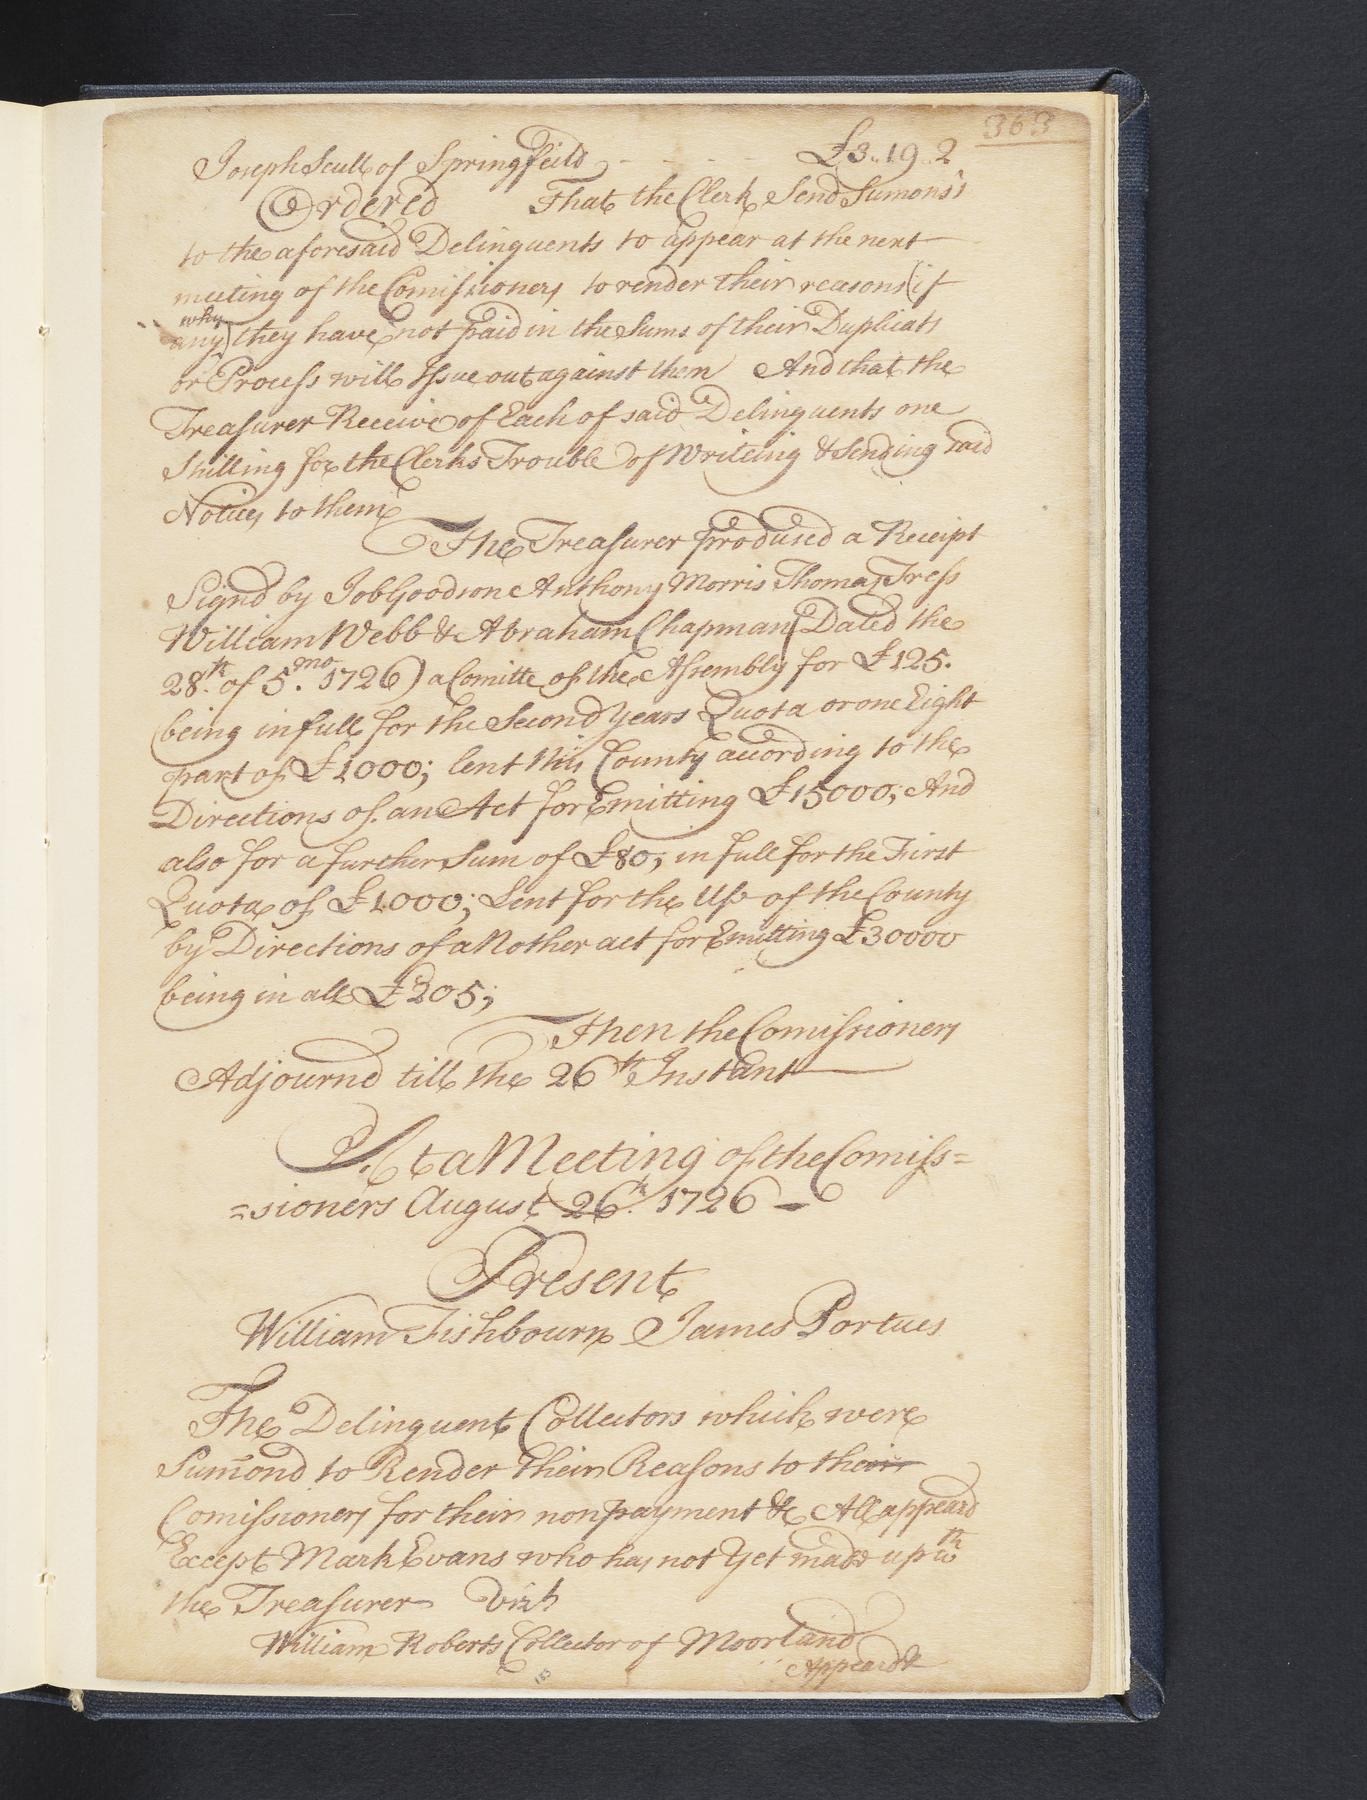 363
Joseph Scull of Springfeild - - - - £3..19..2
Ordered That the Clerk Send Sumons's
to the aforesaid Delinquents to appear at the next
meeting of the Comissioners to render their reasons (if
why
any) they have not paid in the Sums of their Duplicats
or Process will Issue out against them And that the
Treasurer Receive of Each of said Delinquents one
Shilling for the Clerks Trouble of Writeing & Sending said
Notices to them
The Treasurer prodused a Receipt
Signd by Job Goodson Anthony Morris Thomas Tress
William Webb & Abraham Chapman (Dated the
28th. of 5.mo 1726) a Comitte of the Assembly for £125.
being in full for the Second Years Quota or one Eight
part of £1000; lent this County according to the
Directions of an Act for Emitting £15000; And
also for a further Sum of £80; in full for the First
Quota of £1000; Lent for the Use of the County
by Directions of a Nother act for Emitting £30000
being in all £205;
Then the Comissioners
Adjournd till the 26th Instant
At a Meeting of the Comiss=
=sioners August 26th. 1726 —
Present
William Fishbourn James Portues
The Delinquent Collectors which were
Sumond to Render their Reasons to their
Comissioners for their nonpayment &c All appeard
Except Mark Evans who has not Yet made up wth
the Treasurer Vizt
William Roberts Collector of Moorland
Appeard &